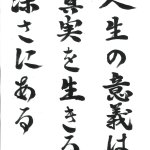 人生の意義は
真実を生きる
深さにある